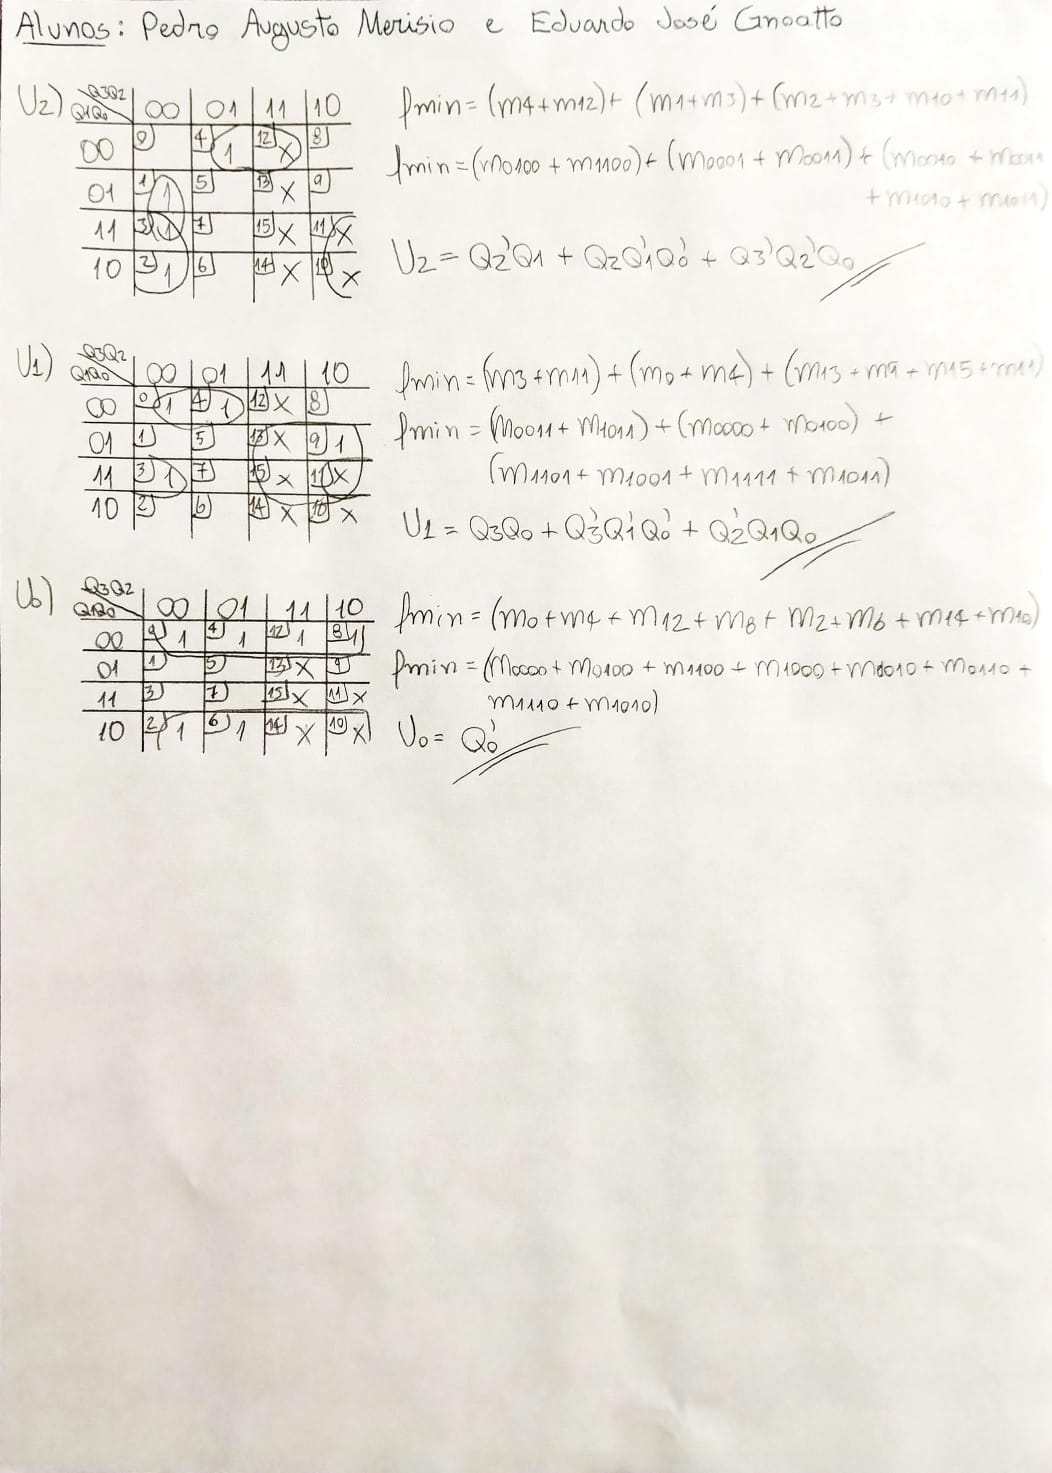 Alunos: Pedro Augusto Merisio e Eduardo José Gnoatto
U2) Q3Q2 00 01 11 10
Q1Q0
00 0 4 1 12 X 8
01 1 1 5 13 X 9
11 3 1 7 15 X 11 X
10 2 1 6 14 X 10 X
fmin = (m4+m12)+ (m1+m3)+(m2+m3+m10+m11)
fmin = (m0100 + m1100)+ (m0001 + m0011) + (m0010 + m0011
+ m1010 + m1011)
U2 = Q2'Q1 + Q2Q1'Q0' + Q3'Q2'Q0
U1) Q3Q2 00 01 11 10
Q1Q0
00 0 1 4 1 12 X 8
01 1 5 13 X 9 1
11 3 1 7 15 X 11 X
10 2 6 14 X 10 X
fmin = (m3+m11) + (m0 + m4) + (m13 + m9 + m15 + m11)
fmin = (m0011 + m1011) + (m0000 + m0100) +
(m1101 + m1001 + m1111 + m1011)
U1 = Q3Q0 + Q3'Q1'Q0' + Q2'Q1Q0
U0) Q3Q2 00 01 11 10
Q1Q0
00 0 1 4 1 12 1 8 1
01 1 5 13 X 9
11 3 7 15 X 11 X
10 2 1 6 1 14 X 10 X
fmin = (m0+m4 + m12 + m8 + m2 + m6 + m14 + m10)
fmin = (m0000 + m0100 + m1100 + m1000 + m0010 + m0110 +
m1110 + m1010)
U0 = Q0'